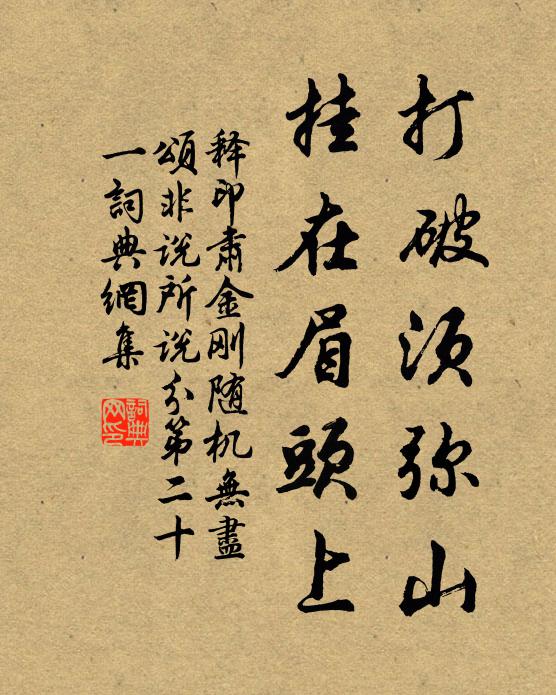 打破须弥山
挂在眉頭上
释印肃金刚随机無盡
頌非说所说分第二十
一詞典網集
詞典网印